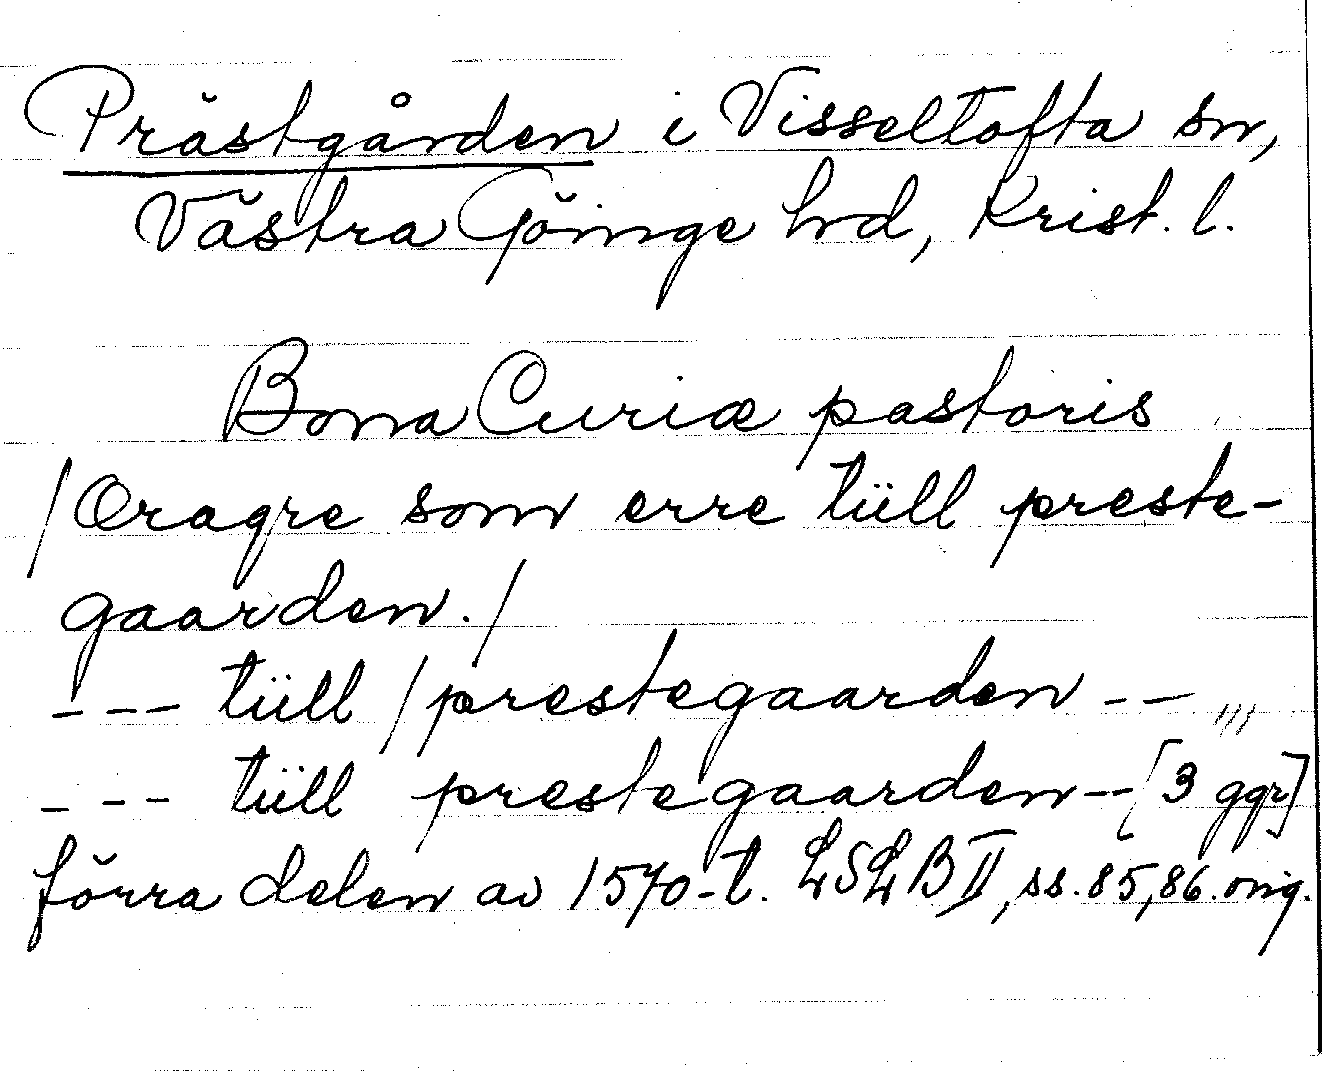 Prästgården i Visseltofta sn,
Västra Göinge hd, Krist. l.
Bona Curiæ pastoris
/Œragre som erre tüll preste-
gaarden./
--- tüll /prestegaarden -- ,,,
--- tüll prestegaarden--[3 ggr]
förra delen av 1570-t. LSLB II, ss. 85, 86. orig.